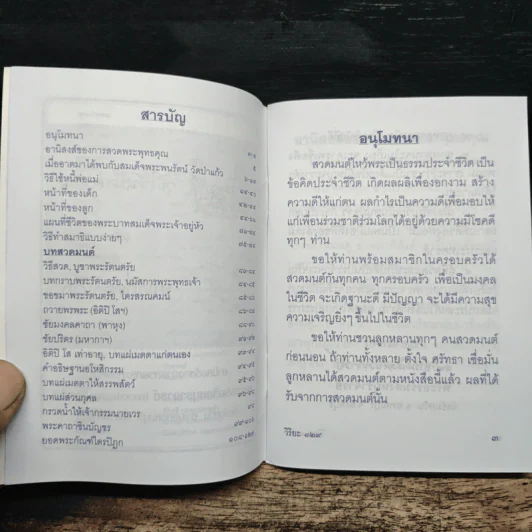 สารบัญ
อนุโมทนา
อานิสงส์ของการสวดพระพุทธคุณ
เมื่ออาตมาได้พบกับสมเด็จพระพนรัตน์ วัดป่าแก้ว
วิธีใช้หนี้พ่อแม่
หน้าที่ของเด็ก
หน้าที่ของลูก
แผนที่ชีวิตของพระบาทสมเด็จพระเจ้าอยู่หัว
วิธีทำสมาธิแบบง่ายๆ
บทสวดมนต์
วิธีสวด, บูชาพระรัตนตรัย
บทกราบพระรัตนตรัย, นมัสการพระพุทธเจ้า
ขอขมาพระรัตนตรัย, ไตรสรณคมน์
ถวายพรพระ (อิติปิ โสฯ)
ชัยมงคลคาถา (พาหุง)
ชัยปริตร (มหากาฯ)
อิติปิ โส เท่าอายุ, บทแผ่เมตตาแก่ตนเอง
คำอธิษฐานอโหสิกรรม
บทแผ่เมตตาให้สรรพสัตว์
บทแผ่ส่วนกุศล
กรวดน้ำให้เจ้ากรรมนายเวร
พระคาถาชินบัญชร
ยอดพระกัณฑ์ไตรปิฎก
อนุโมทนา
สวดมนต์ไหว้พระเป็นธรรมประจำชีวิต เป็น
ข้อคิดประจำชีวิต เกิดผลผลิเพื่องอกงาม สร้าง
ความดีให้แก่ตน ผลกำไรเป็นความดีเพื่อมอบให้
แก่เพื่อนร่วมชาติร่วมโลกได้อยู่ด้วยความมีโชคดี
ทุกๆ ท่าน
ขอให้ท่านพร้อมสมาชิกในครอบครัวได้
สวดมนต์กันทุกคน ทุกครอบครัว เพื่อเป็นมงคล
ในชีวิต จะเกิดฐานะดี มีปัญญา จะได้มีความสุข
ความเจริญยิ่งๆ ขึ้นไปในชีวิต
ขอให้ท่านชวนลูกหลานทุกๆ คนสวดมนต์
ก่อนนอน ถ้าท่านทั้งหลาย ตั้งใจ ศรัทธา เชื่อมั่น
ลูกหลานได้สวดมนต์ตามหนังสือนี้แล้ว ผลที่ได้
รับจากการสวดมนต์นั้น
วิริยะ-๘๒๙
๓